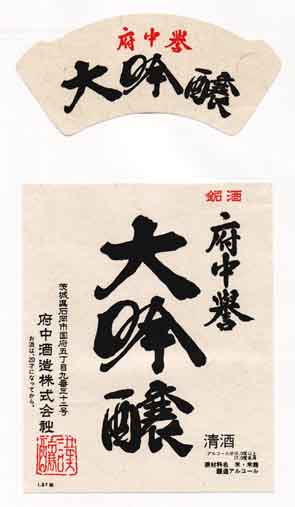 府中誉
大吟醸
銘酒
府中誉
大吟醸
茨城県石岡市国府五丁目九番三十二号
府中酒造株式会社
お酒は、20才になってから。
清酒
アルコール分16.0度以上
17.0度未満
原材料名 米・米麹
醸造アルコール
1.8ℓ詰